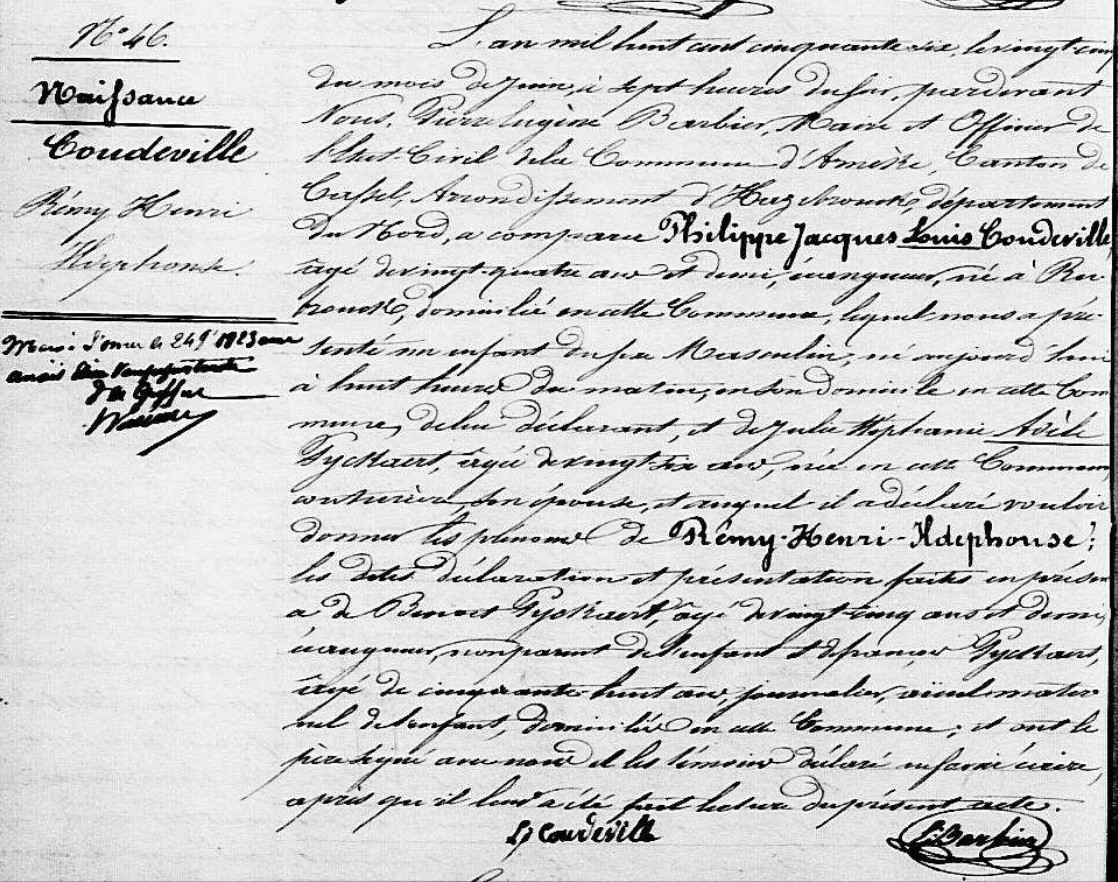 N° 46.
Naissance
Coudeville
Rémy Henri
Ildephonse.
L'an mil huit cent cinquante six, le vingt-cinq
du mois de Juin, à sept heures du soir, pardevant
Nous, Pierre Eugène Barbier, Maire et Officier de
l'Etat-Civil de la Commune d'Arnèke, Canton de
Cassel, Arrondissement d'Hazebrouck, département
du Nord, a comparu Philippe Jacques Louis Coudeville,
âgé de vingt-quatre ans et demi, né à Ru-
brouck, domicilié en cette Commune, lequel nous a pré-
senté un enfant du sexe Masculin, né aujourd'hui
à huit heures du matin, en son domicile en cette Com
mune, de lui déclarant, et de Julie Stéphanie Adèle
Tyckaert, âgée de vingt-six ans, née en cette Commune,
couturière, son épouse, et auquel il a déclaré vouloir
donner les prénoms de Rémy-Henri-Ildephonse;
les dites déclaration et présentation faites en présen
ce de Benoit Tyckaert, âgé de vingt-cinq ans et demi,
non parent de l'enfant et de françois Tyckaert,
âgé de cinquante-huit ans, journalier, aïeul mater
nel de l'enfant, domiciliés en cette Commune; et ont le
père signé avec nous et les témoins déclaré ne savoir écrire,
après qu'il leur a été fait lecture du présent acte.
Ls Coudeville
E. Barbier